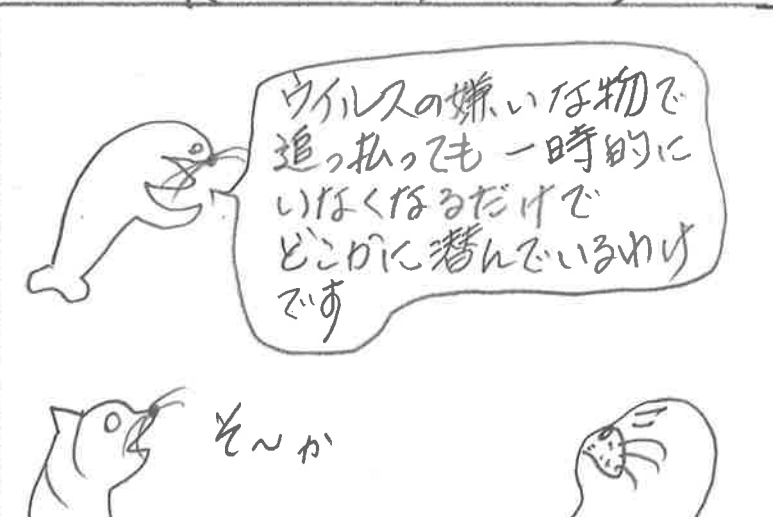 ウイルスの嫌いな物で
追っ払っても一時的に
いなくなるだけで
どこかに潜んでいるわけ
です
そ〜か